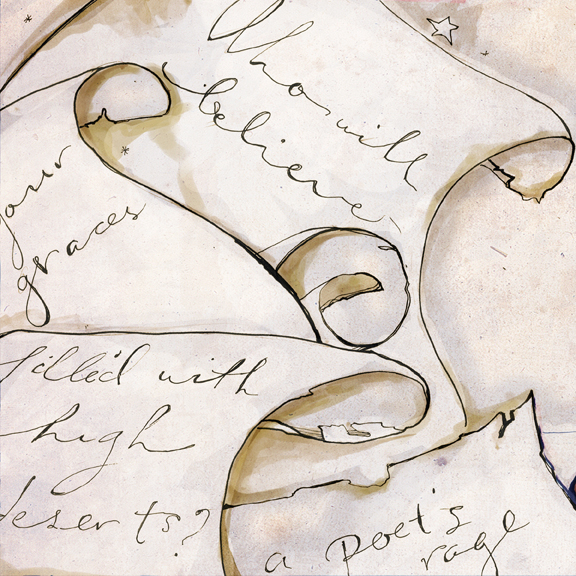 Who will
believe
your
graces
fill'd with
high
deserts?
a poet's
rage